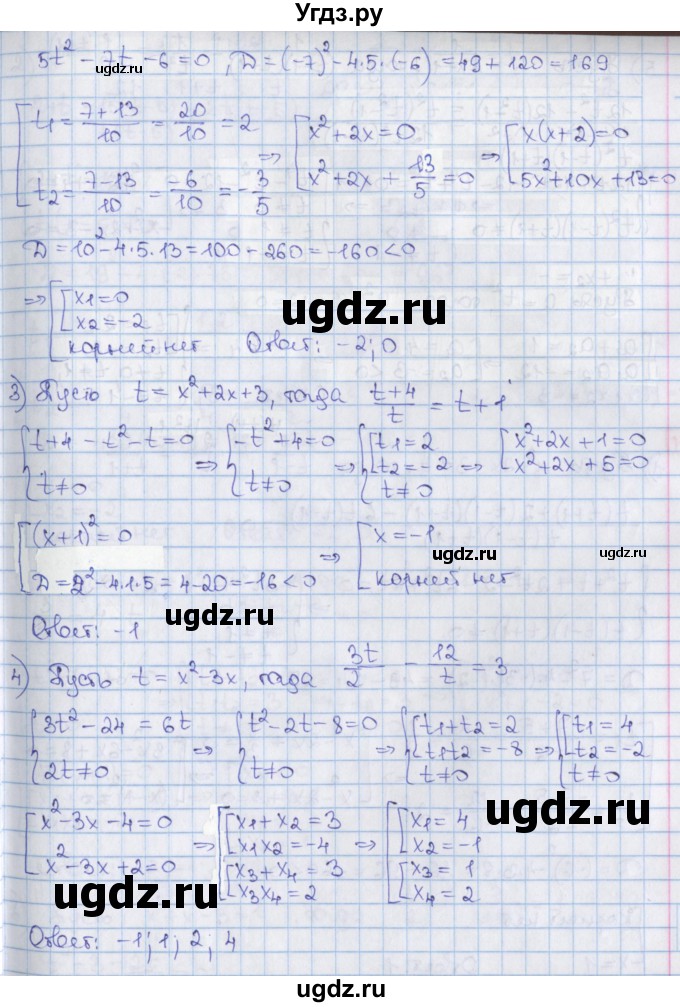 Угдз.ру
5t² - 7t - 6 = 0, D = (-7)² - 4·5·(-6) = 49 + 120 = 169
[ t₁ = (7+13)/10 = 20/10 = 2
t₂ = (7-13)/10 = -6/10 = -3/5
⇒ [ x² + 2x = 0
x² + 2x + 13/5 = 0
⇒ [ x(x+2) = 0
5x² + 10x + 13 = 0
D = 10² - 4·5·13 = 100 - 260 = -160 < 0
⇒ [ [ x₁ = 0
x₂ = -2
корней нет Ответ: -2; 0
ugdz.ru
3) Пусть t = x² + 2x + 3, тогда (t+4)/t = t + 1
{ t + 4 - t² - t = 0
t ≠ 0
⇒ { -t² + 4 = 0
t ≠ 0
⇒ { [ t₁ = 2
t₂ = -2
t ≠ 0
⇒ [ x² + 2x + 1 = 0
x² + 2x + 5 = 0
[ (x+1)² = 0
D = 2² - 4·1·5 = 4 - 20 = -16 < 0
⇒ [ x = -1
корней нет
ugdz.ru
ugdz.ru
ugdz.ru
Ответ: -1
4) Пусть t = x² - 3x, тогда 3t/2 - 12/t = 3
{ 3t² - 24 = 6t
2t ≠ 0
⇒ { t² - 2t - 8 = 0
t ≠ 0
⇒ { { t₁ + t₂ = 2
t₁t₂ = -8
t ≠ 0
⇒ { [ t₁ = 4
t₂ = -2
t ≠ 0
[ x² - 3x - 4 = 0
x² - 3x + 2 = 0
⇒ [ { x₁ + x₂ = 3
x₁x₂ = -4
{ x₃ + x₄ = 3
x₃x₄ = 2
⇒ [ [ x₁ = 4
x₂ = -1
[ x₃ = 1
x₄ = 2
ugdz.ru
ugdz.ru
Ответ: -1; 1; 2; 4
ugdz.ru
ugdz.ru
©ugdz.ru